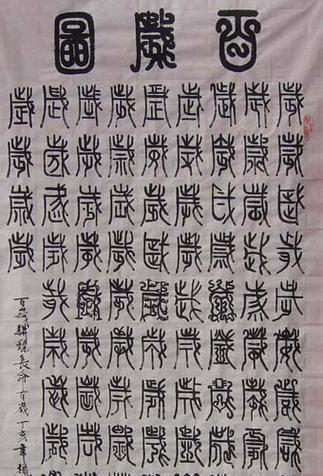 百歲圖
歲歲歲歲歲歲歲歲
歲歲歲歲歲歲歲歲
歲歲歲歲歲歲歲歲
歲歲歲歲歲歲歲歲
歲歲歲歲歲歲歲歲
歲歲歲歲歲歲歲歲
歲歲歲歲歲歲歲歲
歲歲歲歲歲歲歲歲
歲歲歲歲
百歲長命百歲丁亥年